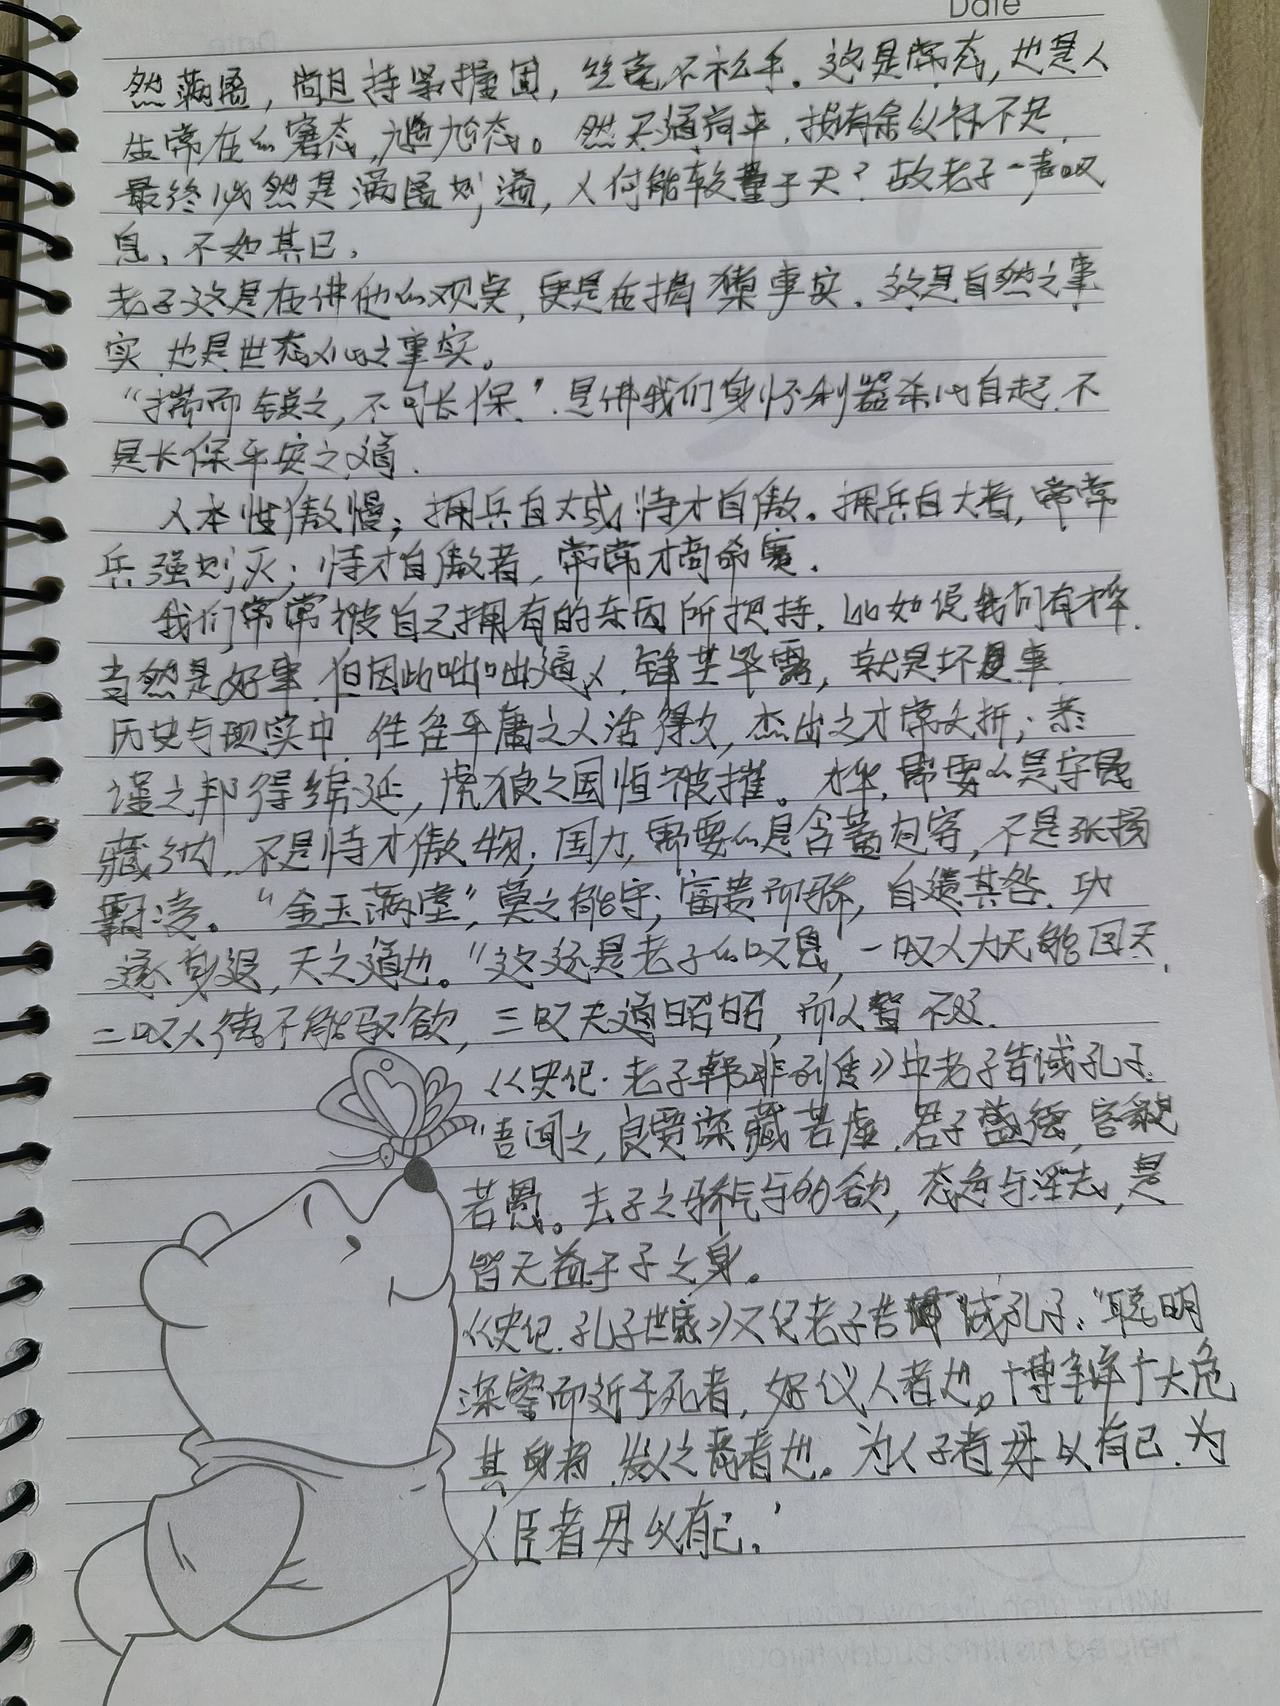 Date
然满盈，尚且持紧握固，丝毫不松手。这是常态，也是人
生常在的窘态，尴尬态。然天道荷平，损有余以补不足，
最终必然是满盈则溢，人何能较量于天？故老子一声叹
息，不如其已。
老子这是在讲他的观点，更是在揭橥事实。这是自然之事
实，也是世态人心之事实。
“揣而锐之，不可长保”，是讲我们身怀利器杀心自起，不
是长保平安之道。
人本性傲慢；拥兵自大或恃才自傲。拥兵自大者，常常
兵强则灭；恃才自傲者，常常才高命蹇。
我们常常被自己拥有的东西所把持，比如说我们有才华，
当然是好事，但因此咄咄逼人，锋芒毕露，就是坏事
历史与现实中，往往平庸之人活得久，杰出之才常夭折；恭
谨之邦得绵延，虎狼之国恒被摧。才华，需要的是守愚
藏锋，不是恃才傲物；国力，需要的是含蓄包容，不是张扬
霸凌。“金玉满堂”，莫之能守；富贵而骄，自遗其咎。功
遂身退，天之道也。”这还是老子的叹息，一叹人力无能回天，
二叹人德不能驭欲，三叹天道昭昭，而人瞽不见。
《史记·老子韩非列传》中老子告诫孔子：
“吾闻之，良贾深藏若虚，君子盛德，容貌
若愚。去子之骄气与多欲，态色与淫志，是
皆无益于子之身。
《史记·孔子世家》又记老子告诫孔子：“聪明
深察而近于死者，好议人者也。博辩广大危
其身者，发人之恶者也。为人子者毋以有己，为
人臣者毋以有己。”